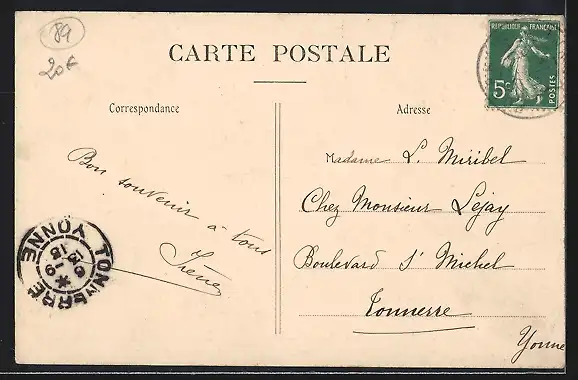 89
20€
CARTE POSTALE
REPUBLIQUE FRANÇAISE
5c
POSTES
Correspondance
Adresse
Bon souvenir à tous
Irène
Madame L. Miribel
Chez Monsieur Lejay
Boulevard St Michel
Tonnerre
Yonne
TONNERRE YONNE